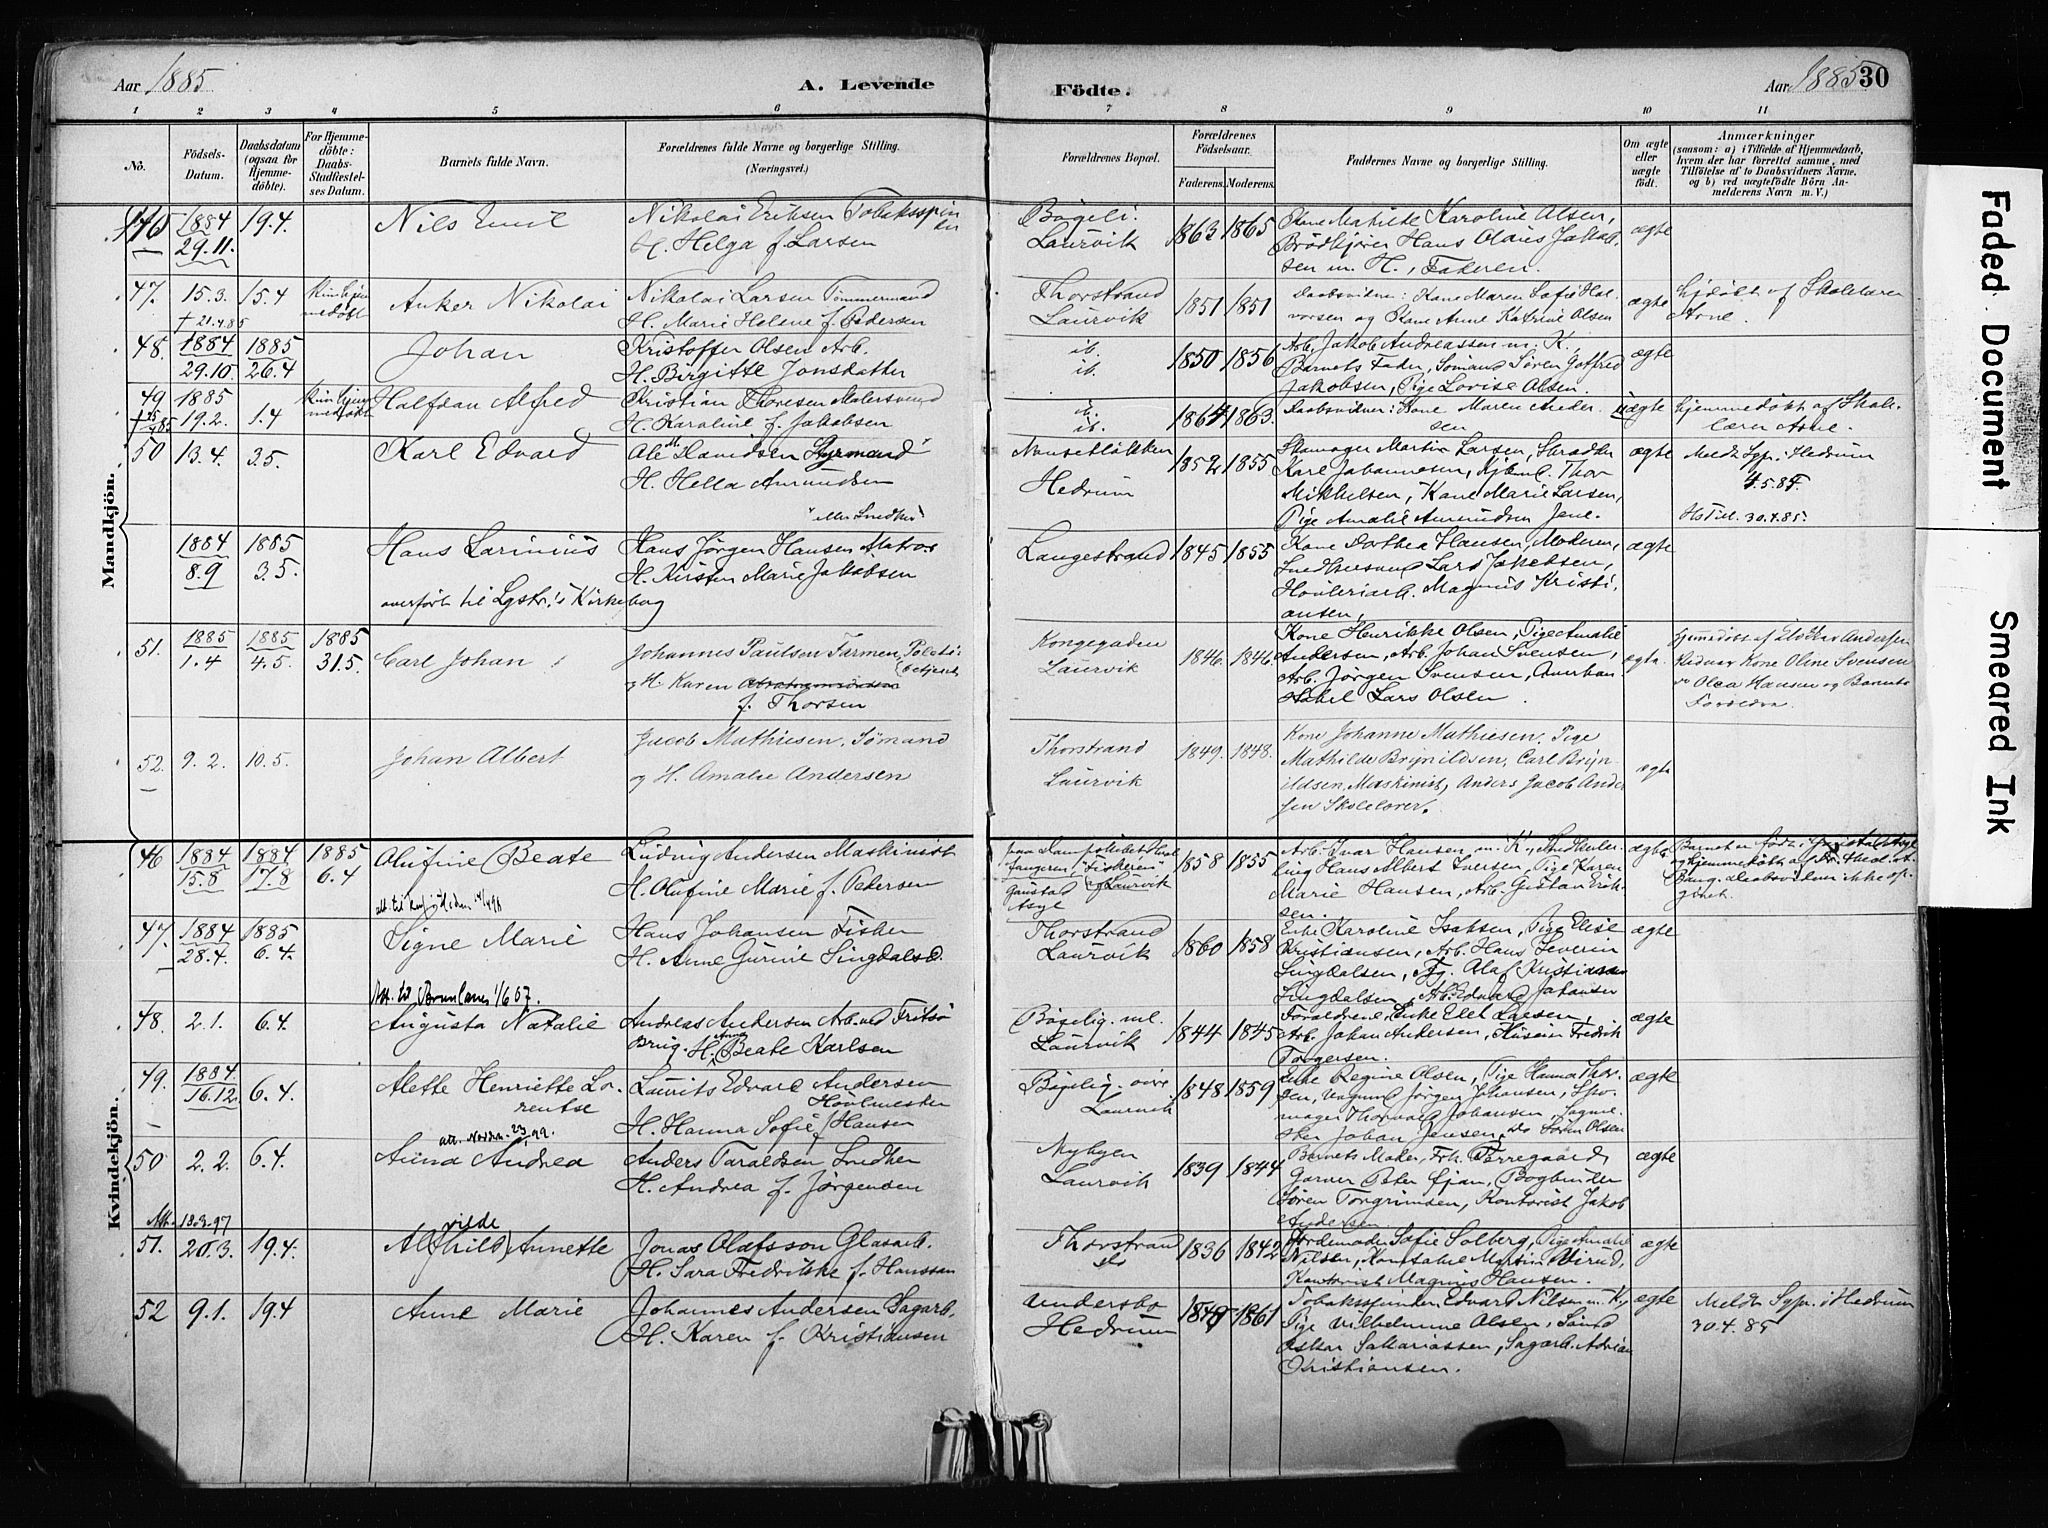 Aar 1885
A. Levende
Födte.
Aar 1885
30
1 2 3 4 5 6 7 8 9 10 11
No.
Födsels-
Datum.
Daabsdatum
(ogsaa for
Hjemme-
döbte).
For Hjemme-
döbte:
Daabs-
Stadfæstel-
ses Datum.
Barnets fulde Navn.
Forældrenes fulde Navne og borgerlige Stilling.
(Næringsvei.)
Forældrenes Bopæl.
Forældrenes
Födselsaar.
Faderens. Moderens.
Faddernes Navne og borgerlige Stilling.
Om ægte
eller
uægte
födt.
Anmærkninger
(saasom: a) i Tilfælde af Hjemmedaab,
hvem der har forrettet samme, med
Tilföielse af to Daabsvidners Navne.
og b) ved uægtefödte Börn An-
melderens Navn m. V.)
Mandkjön.
1884
29.11.
19.4.
Nils Emil
Nikolai Eriksen Tobaksspin
der
H. Helga f. Larsen
Bøgeli.
Laurvik
1863 1865
Kone Mathilde Karoline Olsen,
Brødkjører Hans Olaus Jakob-
sen m. H., Faderen.
ægte
47. 15.3. 15.4
† 21.4.85
Anker Nikolai
Nikolai Larsen Tømmermand
H. Marie Helene f. Pedersen
Thorstrand
Laurvik
1851 1851
Daabsvidner: Kone Maren Sofie Hal-
vorsen og Kone Anne Katrine Olsen
ægte
hjdøbt af Skolelærer
Arne.
48. 1884
29.10.
1885
26.4
Johan
Kristoffer Olsen Arb.
H. Birgitte Jonsdatter
ib.
ib.
1850 1856
Arb. Jakob Andreassen m. K.,
Barnets Fader, Sømand Søren Gotfred
Jakobsen, Pige Lovise Olsen.
ægte
49 1885
19.2. 1.4
Halfdan Alfred
Kristian Thoresen Malersvend
H. Karoline f. Jakobsen
ib.
ib.
1864 1863.
Daabsvidner: Kone Maren Ander-
sen
uægte
hjemmedøbt af Skole-
lærer Arne.
50 13.4. 3.5.
Karl Edvard
Ole M. Davidsen Styrmand
H. Hella Amundsen
"eller Snedker"
Nansetløkken
Hedrum
1852 1855
Skomager Martin Larsen, Skrædder
Karl Johannesen, Kjøbmd. Thor
Mikkelsen, Kone Marie Larsen,
Pige Amalie Amundsen Jene.
ægte
Meldt Sgp. i Hedrum
4.5.85.
30.4.85.
1884
8.9
1885
3.5.
Hans Larinius
Hans Jørgen Hansen Matros
H. Kirsten Marie Jakobsen
overført til Lgstr.'s Kirkebog
Langestrand
1845 1855
Kone Dorthea Hansen, Moderen,
Snedkersvend Lars Jakobsen,
Høvleriarb. Magnus Kristi-
ansen.
ægte
51. 1885
1.4
1885
4.5.
1885
31.5.
Carl Johan
Johannes Paulsen Farmen, Politi-
betjent
og H. Karen Abrahamsdatter
f. Thorsen
Kongegaden
Laurvik
1846. 1846.
Kone Henrikke Olsen, Pige Amalie
Andersen, Arb. Johan Svensen,
Arb. Jørgen Svensen, Overkon-
stabel Lars Olsen
ægte.
Hjemmedøbt af Andersen
Vidner Kone Oline Svensen
Olea Hansen og Barnets
Forældre.
52. 9.2. 10.5.
Johan Albert
Jacob Mathiesen, Sømand
og H. Amalie Andersen
Thorstrand
Laurvik
1849. 1848.
Kone Johanne Mathiesen, Pige
Mathilde Brynildsen, Carl Bryn
ildsen, Maskinist, Anders Jacob Ander
sen Skolelærer.
ægte
Kvindekjön.
46 1884
15.8
1884
17.8
1885
6.4
Olufine Beate
Ludvig Andersen Maskinist
H. Olufine Marie f. Pedersen
paa Damp
fangeren "Fiskeren"
Gaustad af Laurvik
Asyl
1858 1855
Arb. Ivar Hansen m. K., Snedkerlær-
ling Hans Albert Iversen, Pige Karen
Marie Hansen, Arb. Gustav Erik-
sen.
ægte
Barnet er født i Gaustad Asyl
og hjemmedøbt af
Bang. Daabsvidner ikke op-
givet.
47. 1884
28.4.
1885
6.4.
Signe Marie
Att. til Brunlanes 1/6 07.
Hans Johansen Fisker
H. Anne Gurine Lingdalsd.
Thorstrand
Laurvik
1860 1858
Enke Karoline Isaksen, Pige Elise
Kristiansen, Arb. Hans Severin
Lingdalsen, Yg. Olaf Kristian
Lingdalsen, Arb. Edvard Johansen
ægte
48. 2.1. 6.4.
Augusta Natalie
Andreas Andersen Arb. ved Fritsø
Brug. H. Anne Beate Karlsen
Bøgelig. ml.
Laurvik
1844 1845
Forældrene, Enke Elet Larsen,
Arb. Johan Andersen, Fredrik
Torgersen.
ægte
49. 1884
16.12. 6.4.
Alette Henriette Lo-
rentse
Laurits Edvard Andersen
Høvlmester
H. Hanna Sofie f. Hansen
Bøgelig. øvre
Laurvik
1848 1859
Enke Regine Olsen, Pige Hanna Thor-
sen, Vognmd Jørgen Johansen, Sko-
mager Thorvald Johansen, Sagme-
ster Johan Jensen, Do Søren Olsen
ægte
50 2.2. 6.4.
att. Norden 23/1 99.
Anna Andrea
Anders Taraldsen Snedker
H. Andrea f. Jørgensen
Nybyen
Laurvik
1839 1844
Barnets Moder, Frk. Færregaard,
Garver Peter Ejan, Bogbinder
Søren Torgrimsen, Kontorist Jakob
Andersen.
ægte
Att. 18.3.97
51. 20.3. 19.4.
vilde
Al(fhild) Annette
Jonas Olafsson Glasarb.
H. Sara Fredrikke f. Hanssen
Thorstrand
1836 1842
Jordemoder Sofie Solberg, Pige Amalie
Nilsen, Konstabel Martin Virud,
Kontorist Magnus Hansen.
ægte
52 9.1. 19.4
Anne Marie
Johannes Andersen Sagarb.
H. Karen f. Kristiansen
Andersbo
Hedrum
1861
Tobaksspinder Edvard Nilsen m. K,
Pige Vilhelmine Olsen, Sømd
Oskar Sakariassen, Sagarb. Adrian
Kristiansen.
ægte
Meldt Sgp. i Hedrum
30.4.85
Faded Document
Smeared Ink